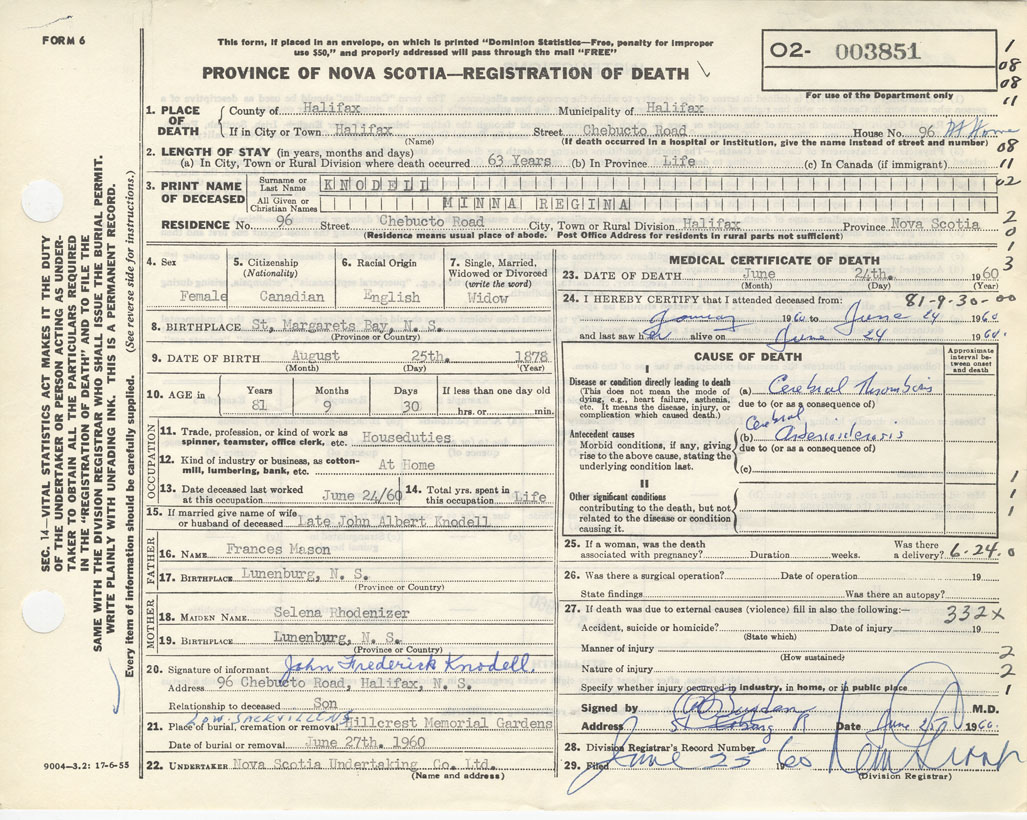 FORM 6
This form, if placed in an envelope, on which is printed "Dominion Statistics—Free, penalty for improper
use $50," and properly addressed will pass through the mail "FREE"
PROVINCE OF NOVA SCOTIA—REGISTRATION OF DEATH
O2- 003851
For use of the Department only
1
08
08
11
1. PLACE OF DEATH
County of Halifax Municipality of Halifax
If in City or Town Halifax Street Chebucto Road House No. 96 At Home
(Name) (If death occurred in a hospital or institution, give the name instead of street and number)
08
2. LENGTH OF STAY (in years, months and days)
(a) In City, Town or Rural Division where death occurred 63 Years (b) In Province Life (c) In Canada (if immigrant)
11
3. PRINT NAME OF DECEASED
Surname or Last Name KNODELL
02
All Given or Christian Names MINNA REGINA
RESIDENCE No. 96 Street Chebucto Road City, Town or Rural Division Halifax Province Nova Scotia
(Residence means usual place of abode. Post Office Address for residents in rural parts not sufficient)
2
0
1
3
4. Sex
Female
5. Citizenship
(Nationality)
Canadian
6. Racial Origin
English
7. Single, Married,
Widowed or Divorced
(write the word)
Widow
8. BIRTHPLACE St. Margarets Bay, N. S.
(Province or Country)
9. DATE OF BIRTH August 25th. 1878
(Month) (Day) (Year)
10. AGE in
Years Months Days If less than one day old
81 9 30 hrs. or min.
OCCUPATION
11. Trade, profession, or kind of work as
spinner, teamster, office clerk, etc. Houseduties
12. Kind of industry or business, as cotton-
mill, lumbering, bank, etc. At Home
13. Date deceased last worked
at this occupation June 24/60
14. Total yrs. spent in
this occupation Life
15. If married give name of wife
or husband of deceased Late John Albert Knodell
FATHER
16. NAME Frances Mason
17. BIRTHPLACE Lunenburg, N. S.
(Province or Country)
MOTHER
18. MAIDEN NAME Selena Rhodenizer
19. BIRTHPLACE Lunenburg, N. S.
(Province or Country)
20. Signature of informant John Frederick Knodell.
Address 96 Chebucto Road, Halifax, N. S.
Relationship to deceased Son
LOW. SACKVILLE NS
21. Place of burial, cremation or removal Hillcrest Memorial Gardens
Date of burial or removal June 27th. 1960
22. UNDERTAKER Nova Scotia Undertaking Co. Ltd.
(Name and address)
MEDICAL CERTIFICATE OF DEATH
23. DATE OF DEATH June 24th. 1960
(Month) (Day) (Year)
24. I HEREBY CERTIFY that I attended deceased from: 81-9-30-00
January 1960 to June 24 1960
and last saw her alive on June 24 1960.
CAUSE OF DEATH
Approximate
interval between
onset
and death
I
Disease or condition directly leading to death
(This does not mean the mode of
dying, e.g., heart failure, asthenia,
etc. It means the disease, injury, or
complication which caused death.)
(a) Cerebral Thrombosis
due to (or as a consequence of)
Antecedent causes
Morbid conditions, if any, giving
rise to the above cause, stating the
underlying condition last.
Cerebral
(b) Arteriosclerosis
due to (or as a consequence of)
(c)
II
Other significant conditions
contributing to the death, but not
related to the disease or condition
causing it.
1
1
1
25. If a woman, was the death
associated with pregnancy? Duration weeks. Was there
a delivery? 6-24.0
26. Was there a surgical operation? Date of operation 19
State findings Was there an autopsy?
27. If death was due to external causes (violence) fill in also the following:—
332X
Accident, suicide or homicide? Date of injury 19
(State which)
Manner of injury
(How sustained)
2
Nature of injury
2
Specify whether injury occurred in industry, in home, or in public place
1
Signed by M.D.
Address Date June 25 1960.
28. Division Registrar's Record Number
29. Filed June 25 1960
(Division Registrar)
SEC. 14—VITAL STATISTICS ACT MAKES IT THE DUTY
OF THE UNDERTAKER OR PERSON ACTING AS UNDER-
TAKER TO OBTAIN ALL THE PARTICULARS REQUIRED
IN THE "REGISTRATION OF DEATH" AND TO FILE THE
SAME WITH THE DIVISION REGISTRAR WHO SHALL ISSUE THE BURIAL PERMIT.
WRITE PLAINLY WITH UNFADING INK. THIS IS A PERMANENT RECORD.
Every item of information should be carefully supplied. (See reverse side for instructions.)
9004—3.2: 17-6-55